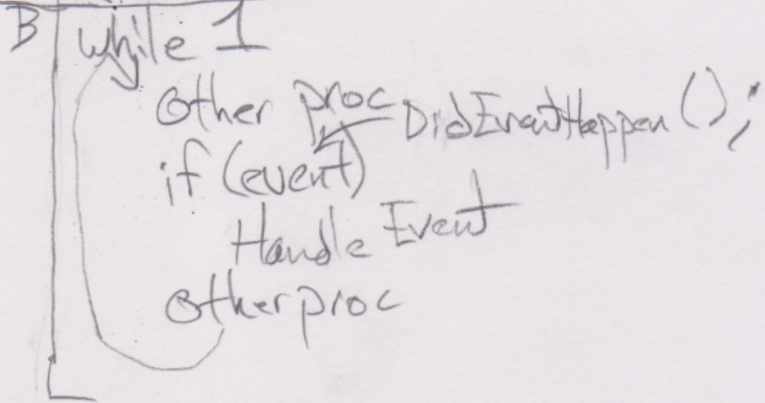 B while 1
other proc DidEventHappen();
if (event)
Handle Event
otherproc